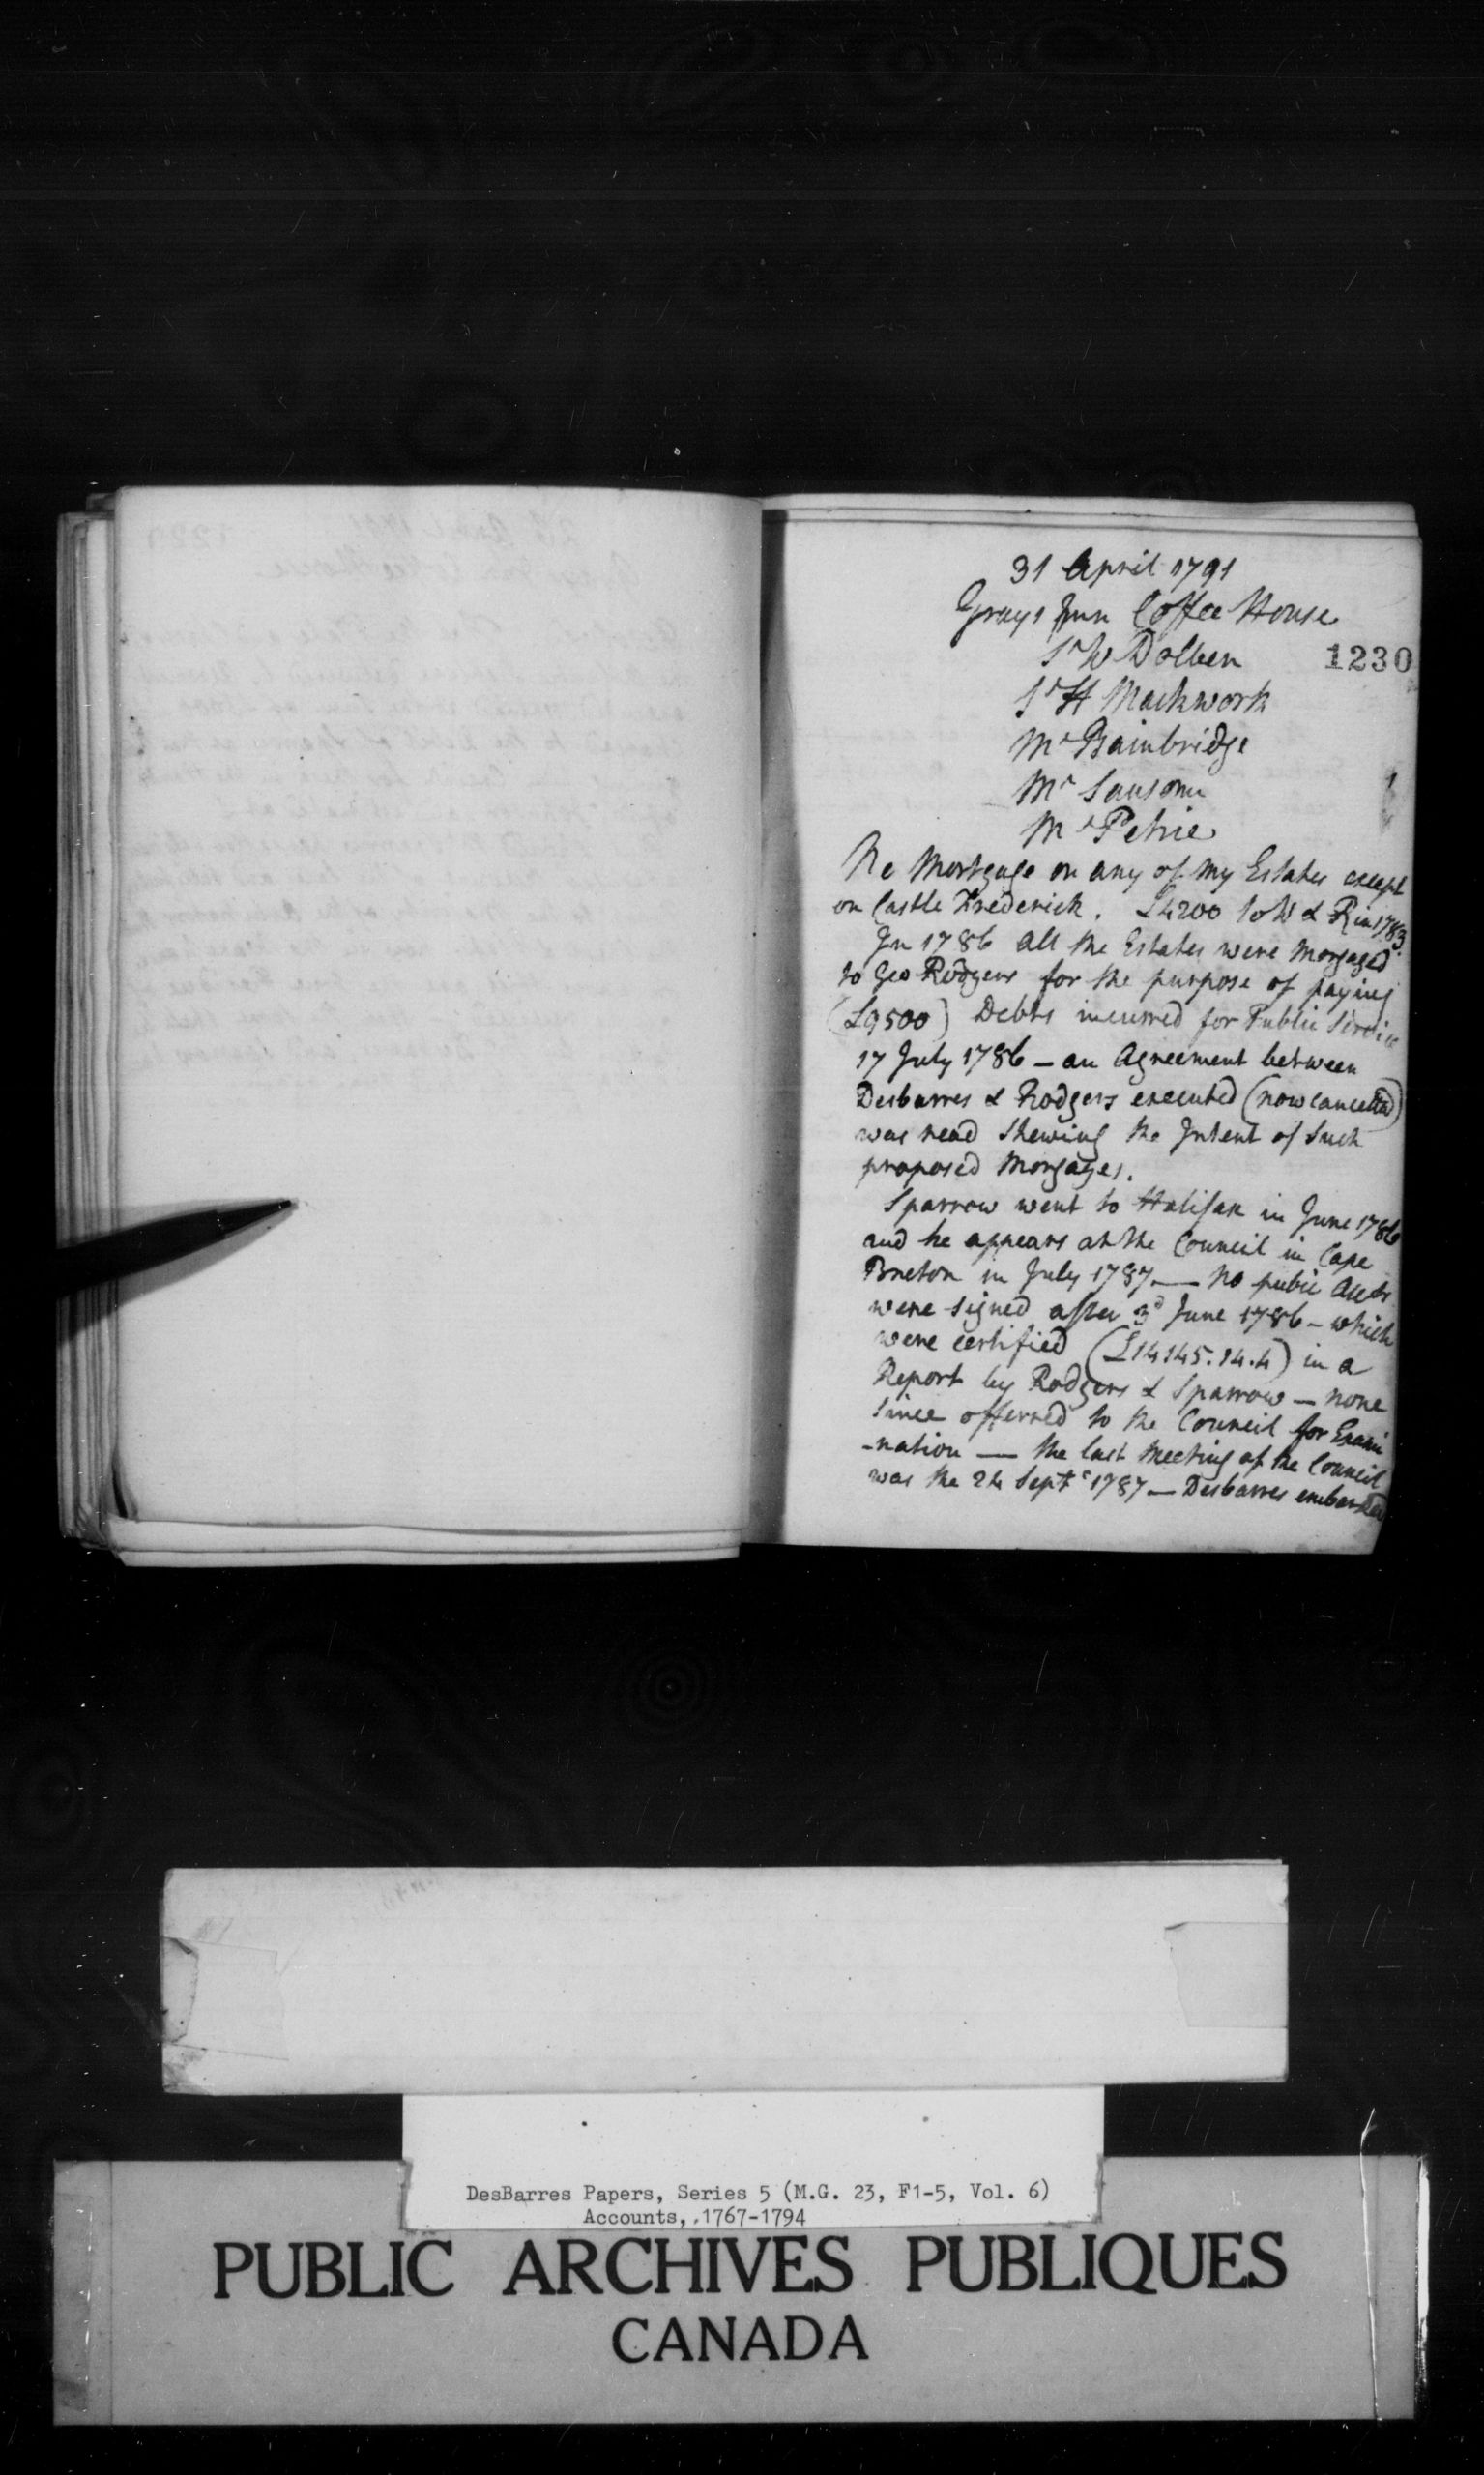 31 April 1791
Grays Inn Coffee House
1230
Sr W Dolben
Sr H Mackwork
Mr Bainbridge
Mr Sansome
Mr Petrie
No Mortgage on any of my Estates except
on Castle Frederick. £4200 to W & R in 1783.
In 1786 all the Estates were Morgaged
to Geo Rodgers for the purpose of paying
(£9500) Debts incurred for Public Service
17 July 1786 — an Agreement between
Desbarres & Rodgers executed (now cancelled)
was read Shewing the Intent of Such
proposed Morgages.
Sparrow went to Halifax in June 1786
and he appears at the Council in Cape
Breton in July 1787 — no pubic Accts
were signed after 3d June 1786 — which
were certified (£14145.14.4) in a
Report by Rodgers & Sparrow — none
Since offerred to the Council for Exami
-nation — the last Meeting of the Council
was the 24 Septr 1787 — Desbarres embarked
DesBarres Papers, Series 5 (M.G. 23, F1-5, Vol. 6)
Accounts, 1767-1794
PUBLIC ARCHIVES PUBLIQUES
CANADA